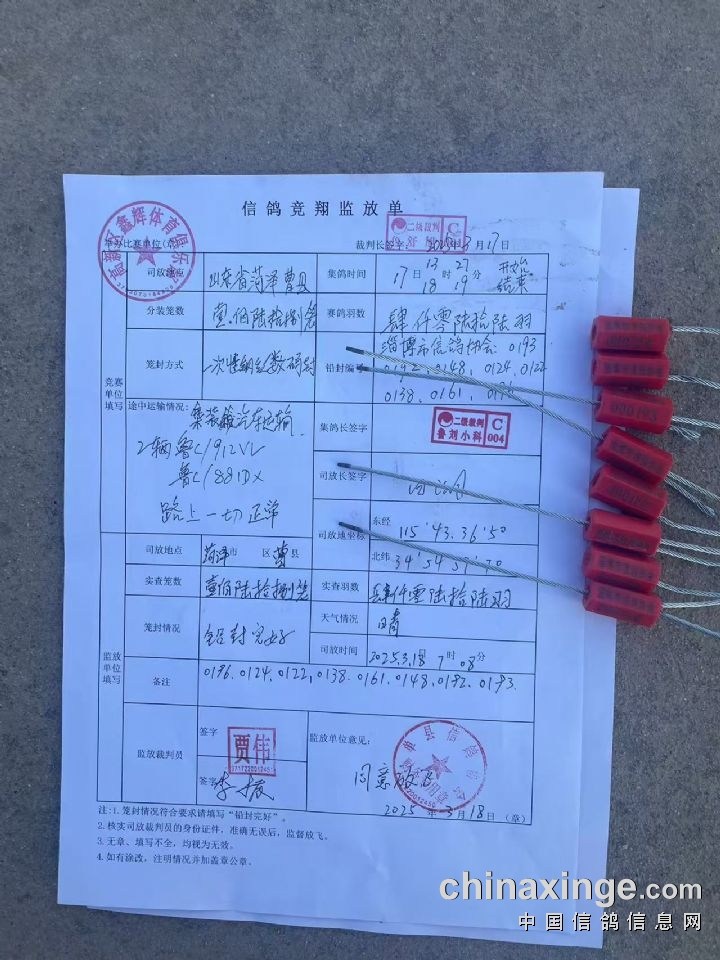 信鸽竞翔监放单
举办比赛单位(章)
高新区鑫辉体育俱乐
裁判长签字:
二级裁判 C
3月17日
司放地点
山东省菏泽曹县
集鸽时间
17日 13时27分 开始
18 19 结束
分装笼数
壹佰陆拾捌笼
赛鸽羽数
肆仟零陆拾陆羽
笼封方式
一次性钢丝数码封
铅封编号
淄博市信鸽协会:0193
0192、0148、0124、0122
0138、0161、0196
竞赛单位填写
途中运输情况:
集装箱汽车运输
2辆鲁C1912VL
鲁C1881DX
路上一切正常
集鸽长签字
二级裁判 C
鲁刘小科 004
司放长签字
司放地坐标
东经
115°43.36'50
北纬
34°54
司放地点
菏泽市 区曹县
实查笼数
壹佰陆拾捌笼
实查羽数
肆仟零陆拾陆羽
笼封情况
铅封完好
天气情况
晴
司放时间
2025.3.18日7时08分
监放单位填写
备注
0196.0124.0122,0138.0161.0148.0192.0193.
监放裁判员
签字
贾伟
签字
李
监放单位意见:
单县信鸽协会
同意放飞
2025年3月18日(章)
注:1.笼封情况符合要求请填写“铅封完好”。
2.核实司放裁判员的身份证件,准确无误后,监督放飞。
3.无章、填写不全,均视为无效。
4.如有涂改,注明情况并加盖章公章。
000193
chinaxinge.com
中国信鸽信息网